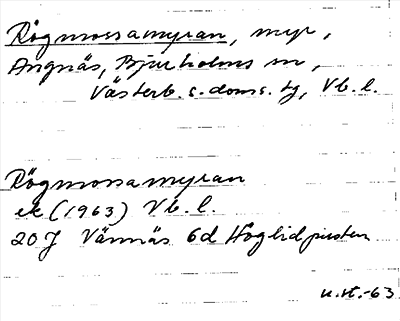 Rögmossamyran, myr,
Angnäs, Bjurholms sn,
Västerb. s. doms. tg, Vb. l.
Rögmossamyran
ek (1963) Vb. l.
20 J Vännäs 6d Höglidpusten
u.st.-63